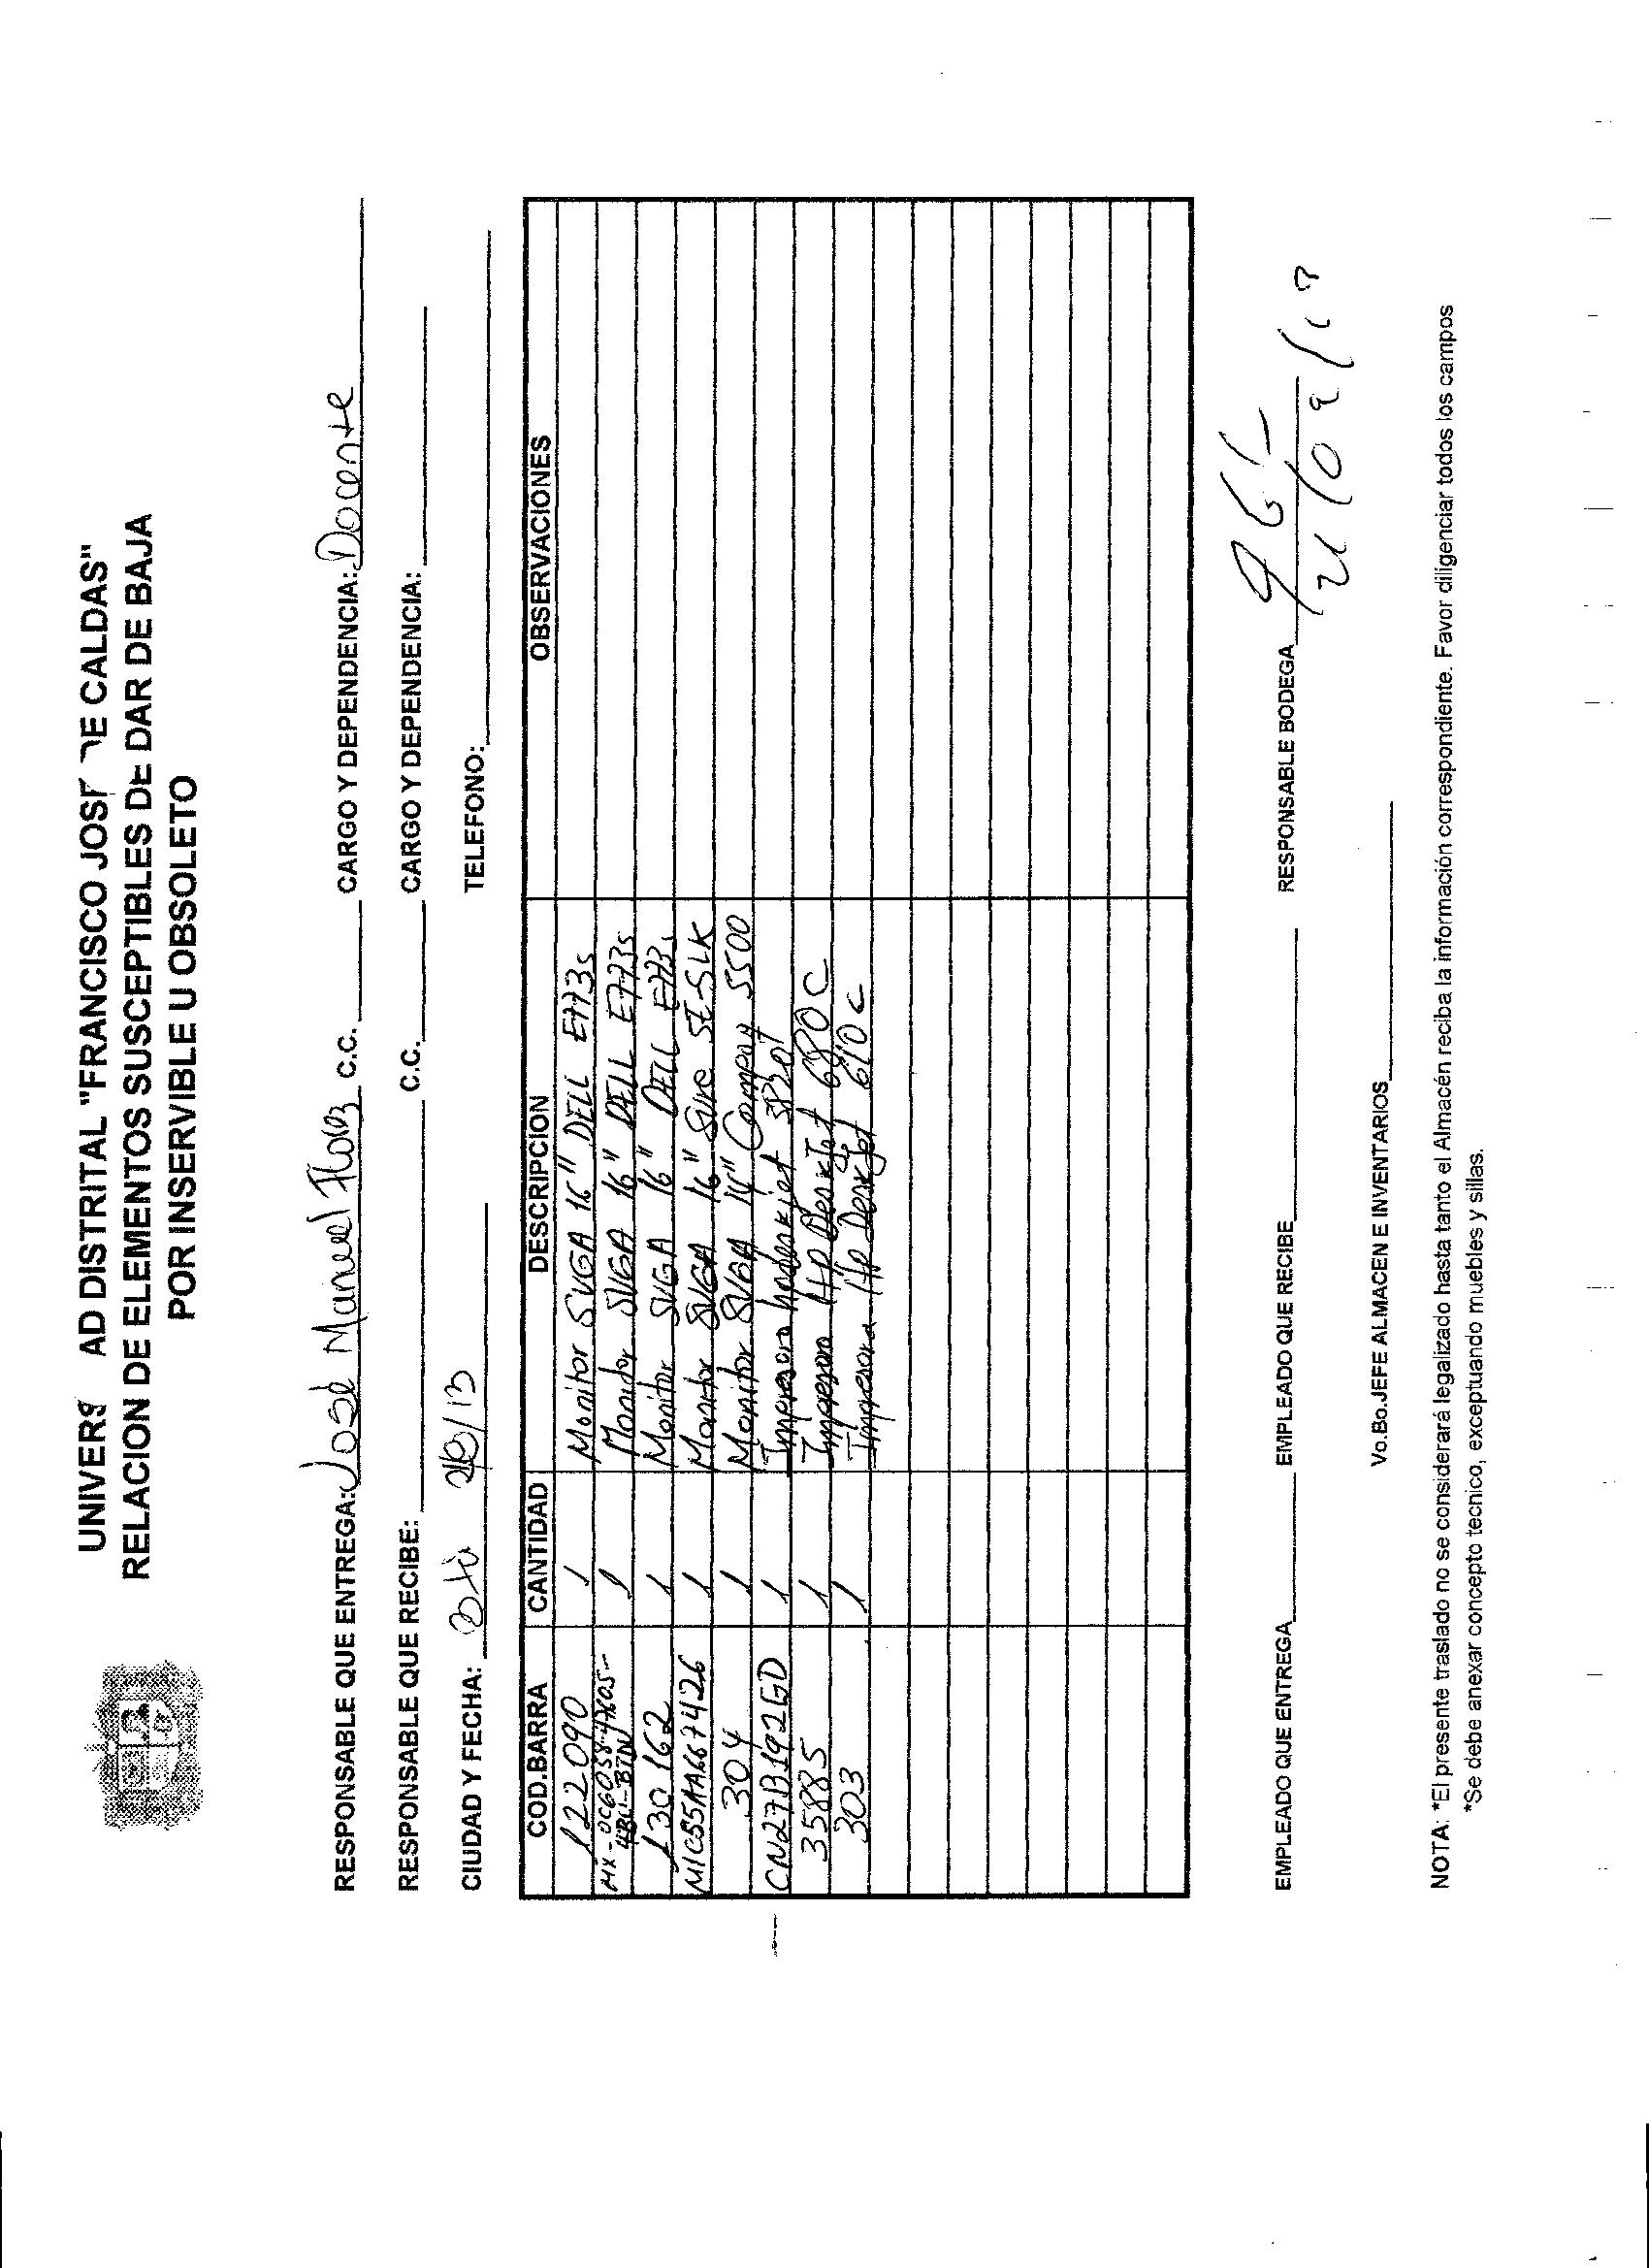 UNIVERS AD DISTRITAL "FRANCISCO JOSE DE CALDAS"
RELACION DE ELEMENTOS SUSCEPTIBLES DE DAR DE BAJA
POR INSERVIBLE U OBSOLETO
RESPONSABLE QUE ENTREGA: José Manuel Florez C.C. CARGO Y DEPENDENCIA: Docente
RESPONSABLE QUE RECIBE: C.C. CARGO Y DEPENDENCIA:
CIUDAD Y FECHA: TELEFONO:
COD.BARRA CANTIDAD DESCRIPCION OBSERVACIONES
122090 1 Monitor SVGA 16" DELL E773s
MX-0C6058-47605- 1 Monitor SVGA 16" DELL E773s
130162 1 Monitor SVGA 16" DELL E773s
M1C55AA667426 1 Monitor SVGA 16" Sure SE-SLK
304 1 Monitor SVGA 14" Compaq 5500
CN27B192GD 1 Impresora
35885 1 Impresora HP Deskjet 680C
303 1 Impresora HP Deskjet 610c
EMPLEADO QUE ENTREGA EMPLEADO QUE RECIBE RESPONSABLE BODEGA
Vo.Bo.JEFE ALMACEN E INVENTARIOS
NOTA: *El presente traslado no se considerará legalizado hasta tanto el Almacén reciba la información correspondiente. Favor diligenciar todos los campos
*Se debe anexar concepto tecnico, exceptuando muebles y sillas.